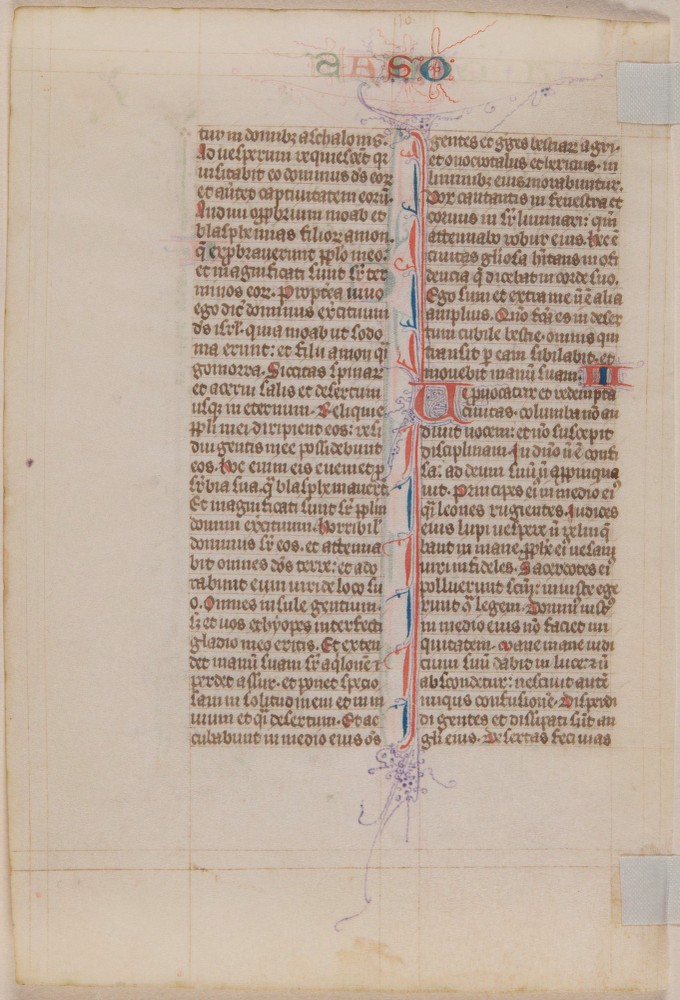 SASO
tur in domibz aschalonis.
Ad vesperum requiescēt qr
visitabit eos dominus ds̄ eoꝝ
et av̄tet captivitatem eorū.
Audivi opp̄brium moab et
blasphemias filioꝝ amon.
q̄ exprobraverunt pplo meo:
et magnificati sunt sr̄ ter
minos eoꝝ. Propt̄ea vivo
ego dic̄ dominus exc̄ituum
ds̄ isrl̄. quia moab ut sodo
ma erunt: et filii amon qi
gomorra. Siccitas spinaꝝ
et acervi salis et desertum
usqꝫ in eternum. Reliquie
ppli mei diripient eos: resi
dui gentis mee possidebunt
eos. Hoc eium eis eveniet p
sr̄bia sua. q̄ blasphemaverūt
Et magnificati sunt sr̄ pplm
domini exc̄ituum. Horribil'
dominus sr̄ eos. et attenua
bit omnes dōs terre: et ado
rabunt eum viri de loco su
o. Omnes insule gentium.
sꝫ et vos ethyopes interfecti
gladio meo eritis. Et exten
det manū suam sr̄ aq̄lonē ⁊
perdet assur. et ponet specio
sam in solitudinem et in in
vium et qi desertum. Et ac
cubabunt in medio eius oēs
gentes et gr̄ges bestiaꝝ agri.
et onocrotalus et hericius. in
liminibꝫ eius morabuntur.
Vox cantantis in fenestra et
corvus in sr̄liminari: qm̄
attenuabo robur eius. Hec ē
civitas gl̄iosa hītans in ꝯfi
dencia q̄ dicebat in corde suo.
Ego sum et extra me nō ē alia
amplius. Quō fc̄a es in deser
tum cubile bestie. omnis qui
transit p eam sibilabit. et
movebit manū suam. III
Ve p̄vocatrix et redempta
civitas. columba nō au
divit vocem: et nō suscepit
disciplinam. In dn̄o nō ē confi
sa: ad deum suū nō app̄pinqua
vit. Principes ei' in medio ei'
qi leones rugientes. Iudices
eius lupi vespere nō relinq̄
bant in mane. pp̄he ei' vesani
viri infideles. Sacerdotes ei'
polluerunt scm̄: iniuste ege
runt ꝯ legem. Domin' iust'
in medio eius nō faciet ini
quitatem. mane mane iudi
cium suū dabit in luce: ⁊ nō
abscondetur: nescivit autē
iniquus confusionem. Disperdi
di gentes et dissipati sūt an
gl̄i eius. Desertas feci vias